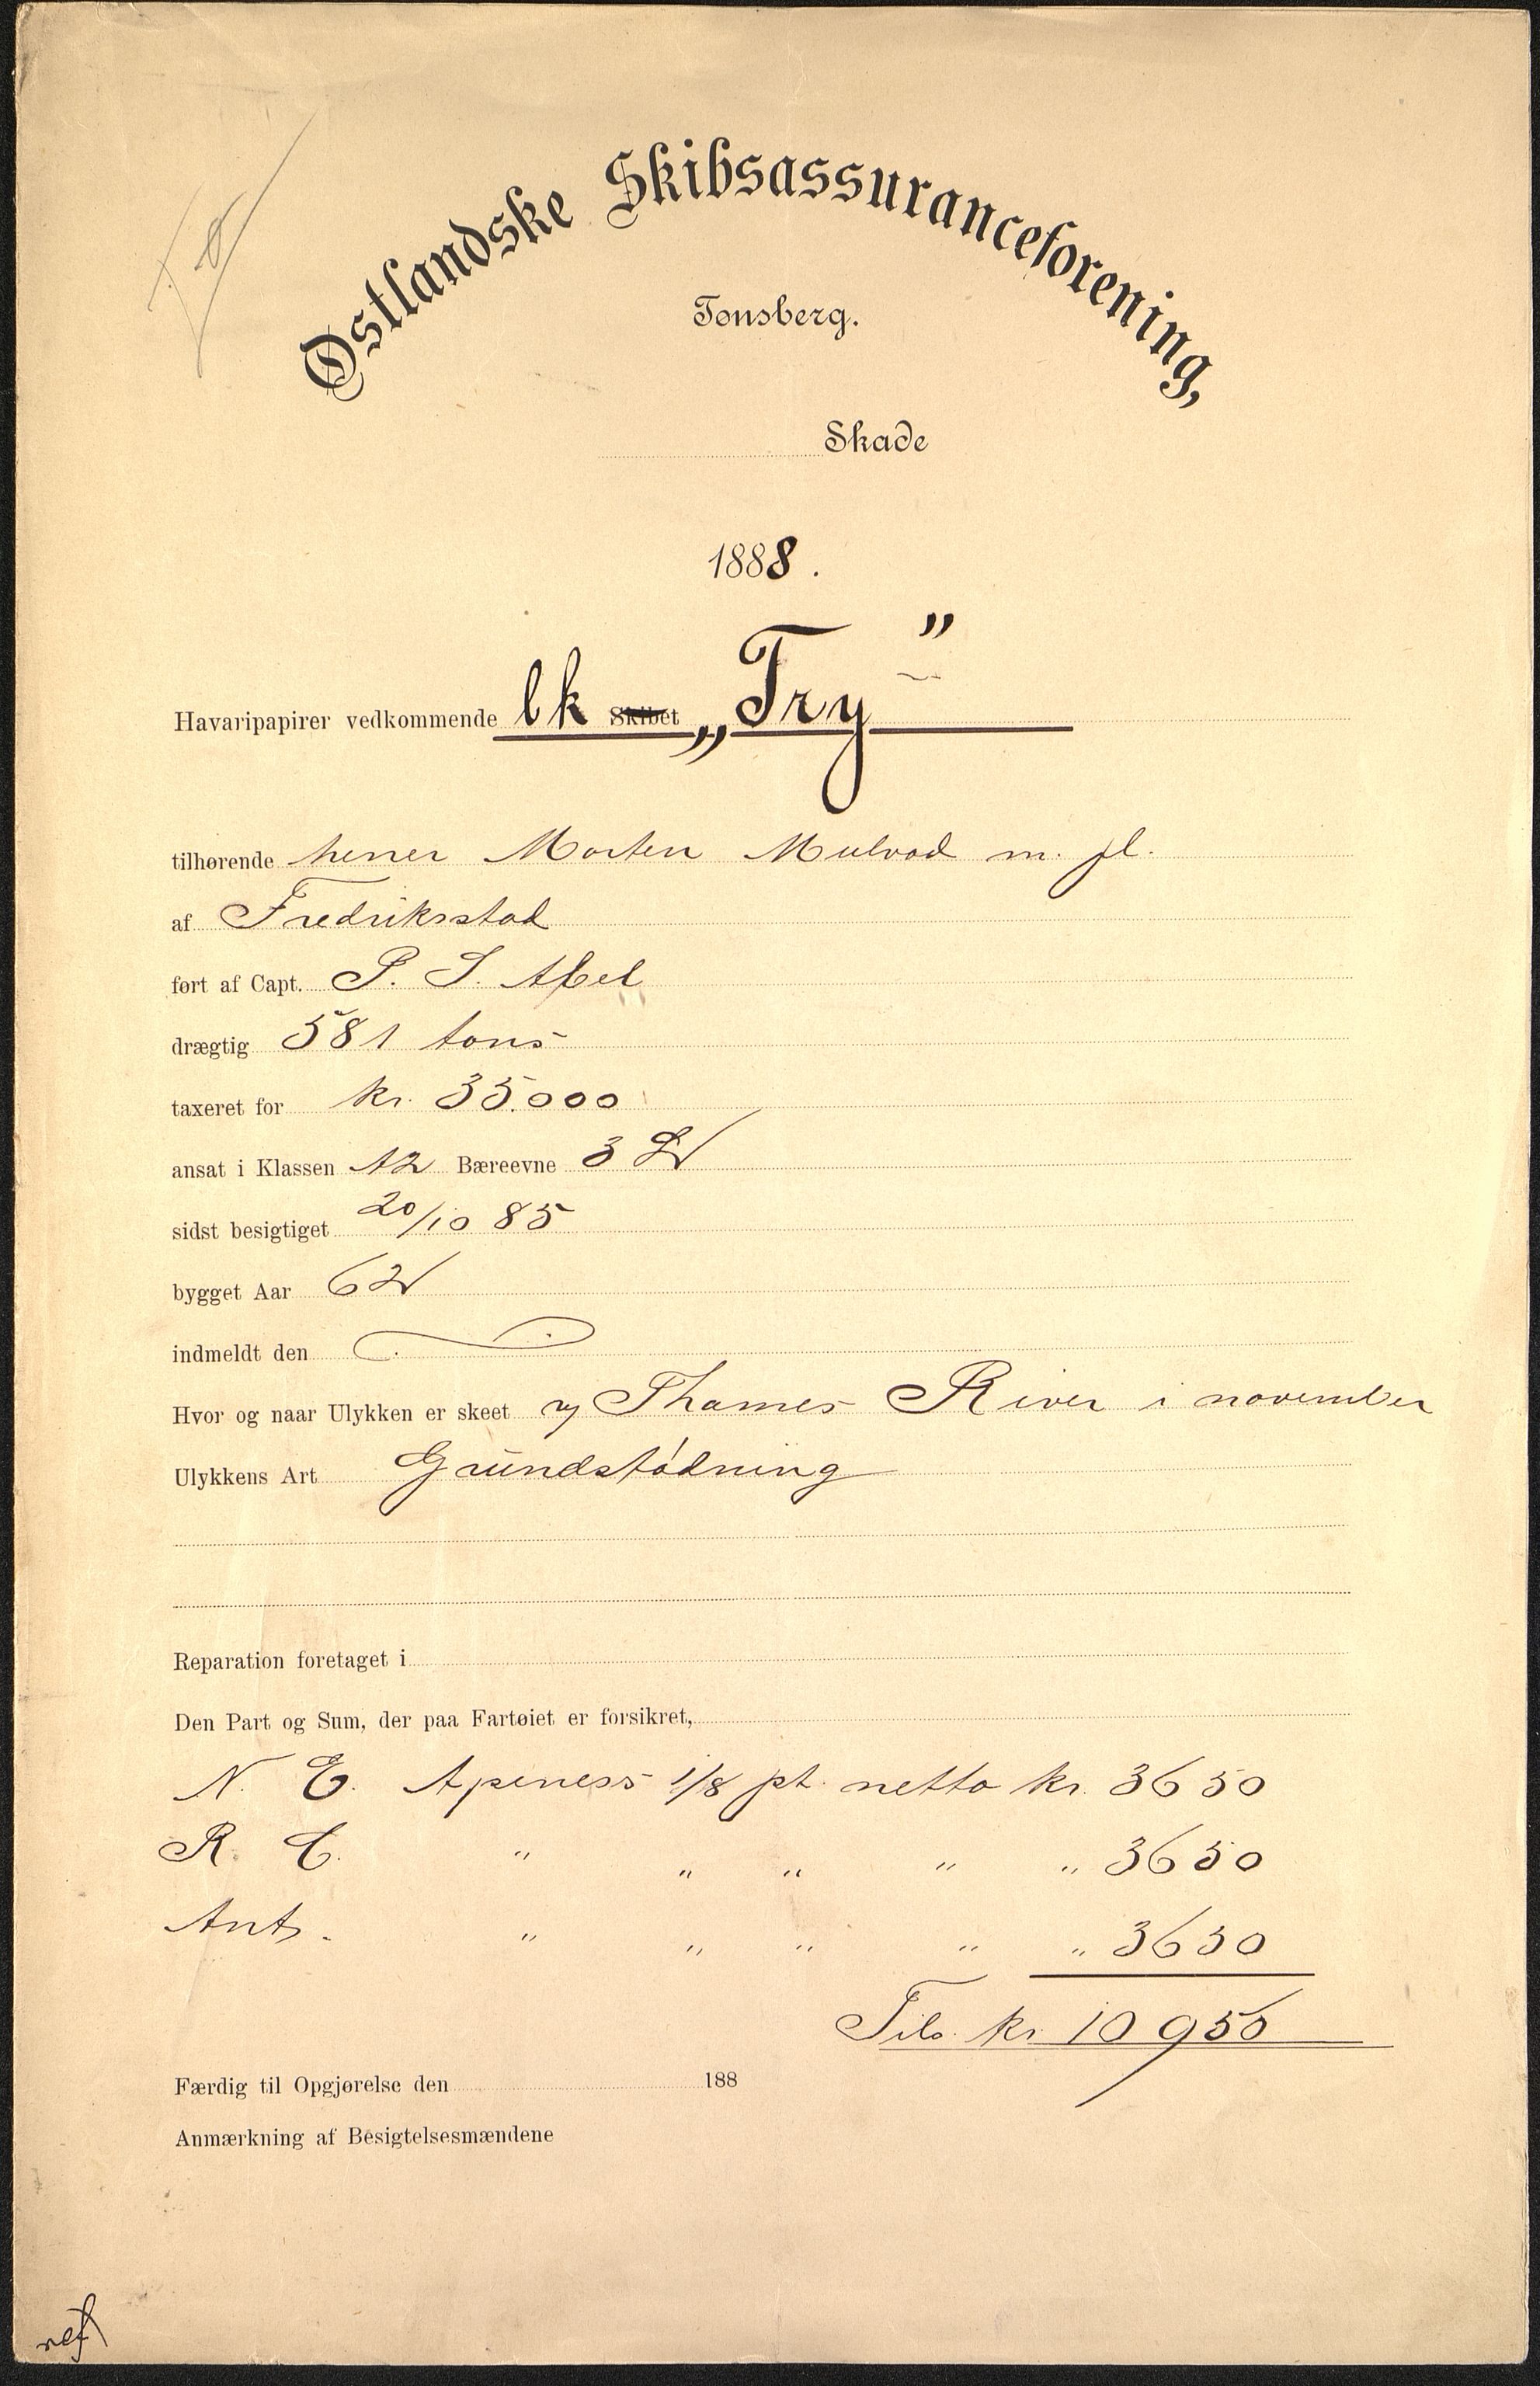 Østlandske Skibsassuranceforening,
Tønsberg.
Skade
1888.
Havaripapirer vedkommende bk Skibet „Try”
tilhørende herrer Morten Mulvad m. fl.
af Fredriksstad
ført af Capt. P. I. Abel
drægtig 581 tons
taxeret for kr. 35.000
ansat i Klassen A2 Bæreevne 3 L
sidst besigtiget 20/10 85
bygget Aar 62
indmeldt den
Hvor og naar Ulykken er skeet Thames River i november
Ulykkens Art Grundstødning
Reparation foretaget i
Den Part og Sum, der paa Fartøiet er forsikret,
N. C. Apeness 1/8 pt. netto kr. 3650
R. C. " " " " " 3650
Ant. " " " " " 3650
Tils. kr. 10950
Færdig til Opgjørelse den 188
Anmærkning af Besigtelsesmændene